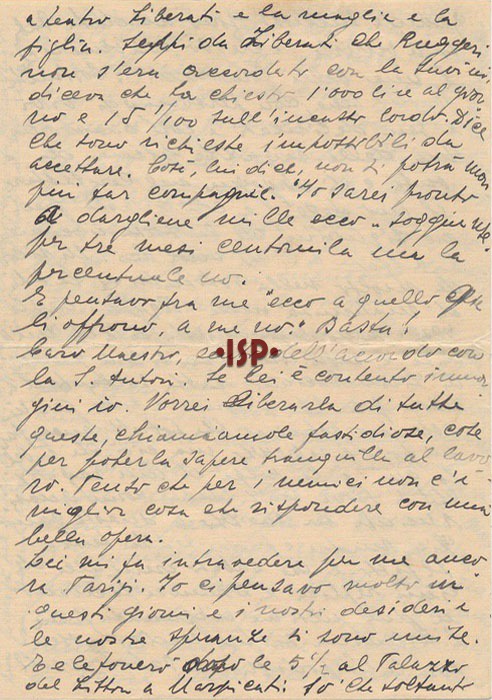 a teatro Liberati e la moglie e la
figlia. Seppi da Liberati che Ruggeri
non s'era accordato con la Suvini,
diceva che ha chiesto 1'000 lire al gior
no e 15 1/100 sull'incasso lordo. Dice
che sono richieste impossibili da
accettare. Così, lui dice, non si potrà mai
più far compagnie. "Io sarei pronto
a dargliene mille ecco" soggiunse
per tre mesi centomila ma la
percentuale no.
E pensavo fra me "ecco a quello
li offrono, a me no." Basta!
Caro Maestro, dell'accordo con
la S. Autori. Se lei è contento immag
gini io. Vorrei liberarla di tutte
queste, chiamiamole fastidiose, cose
per poterla sapere tranquilla al lavo
ro. Tanto che per i nemici non c'è
miglior cosa che rispondere con una
bella opera.
Lei mi fa intravedere per me anco
ra Parigi. Io ci pensavo molto in
questi giorni e i nostri desideri e
le nostre speranze si sono unite.
Telefonerò dopo le 5 1/2 al Palazzo
del Littorio a Marpicati. Io che soltanto
·ISP·